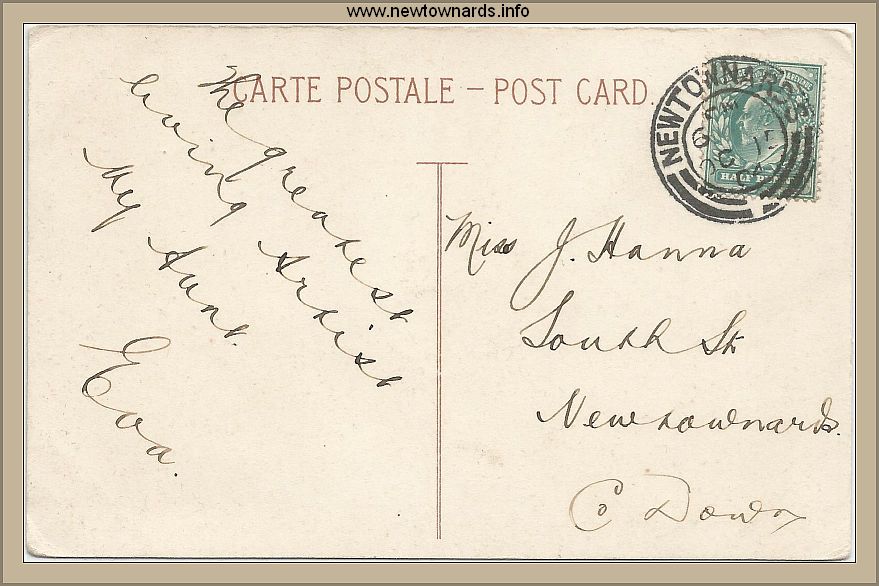 www.newtownards.info
CARTE POSTALE - POST CARD.
NEWTOWNARDS
HALF PENNY
The greatest
living Artist
My Aunt.
Eva.
Miss J. Hanna
South St
Newtownards.
Co Down